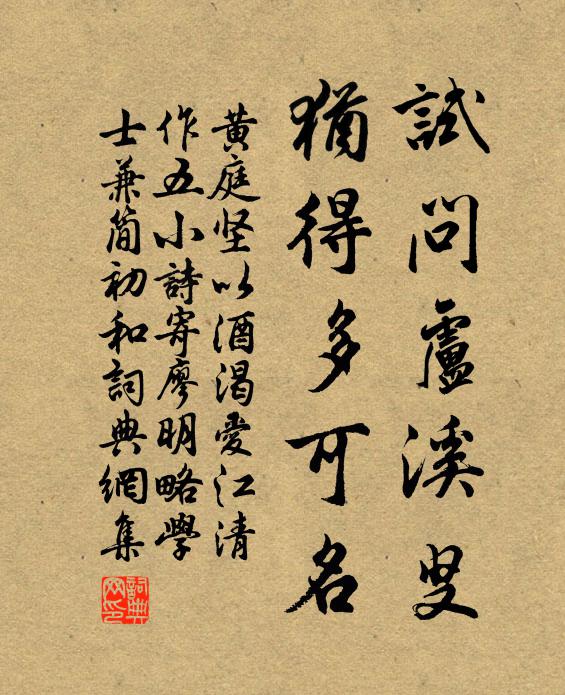 試問盧溪叟
猶得多可名
黄庭坚以酒渴愛江清
作五小詩寄廖明略學
士兼简初和詞典網集
詞典
网印